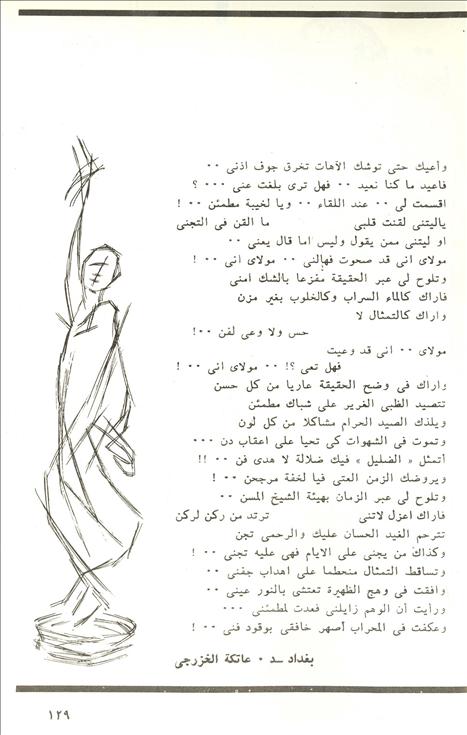 وأعيك حتى توشك الآهات تخرق جوف اذنى ۰۰
فاعيد ما كنا نعيد ۰۰ فهل ترى بلغت عنى ۰۰۰ ؟
اقسمت لى ۰۰ عند اللقاء ۰۰ ويا لخيبة مطمئن ۰۰ !
ياليتنى لقنت قلبى ما القن فى التجنى
او ليتنى ممن يقول وليس اما قال يعنى ۰۰
مولاى انى قد صحوت فهالنى ۰۰ مولاى انى ۰۰ !
وتلوح لى عبر الحقيقة مفزعا بالشك امنى
فاراك كالماء السراب وكالخلوب بغير مزن
واراك كالتمثال لا
حس ولا وعى لفن ۰۰!
مولاى ۰۰ انى قد وعيت
فهل تعى ؟! ۰۰ مولاى انى ۰۰ !
واراك فى وضح الحقيقة عاريا من كل حسن
تتصيد الظبى الغرير على شباك مطمئن
ويلذك الصيد الحرام مشاكلا من كل لون
وتموت فى الشهوات كى تحيا على اعقاب دن ۰۰۰
أتمثل « الضليل » فيك ضلالة لا هدى فن ۰۰ !!
ويروضك الزمن العتى فيا لخفة مرجحن ۰۰ !
وتلوح لى عبر الزمان بهيئة الشيخ المسن ۰۰
فاراك اعزل لاتنى ترتد من ركن لركن
تترحم الغيد الحسان عليك والرحمى تجن
وكذاك من يجنى على الايام فهى عليه تجنى ۰۰ !
وتساقط التمثال منحطما على اهداب جفنى ۰۰
وافقت فى وهج الظهيرة تعتشى بالنور عينى ۰۰
ورأيت أن الوهم زايلنى فعدت لمطمئنى ۰۰۰
وعكفت فى المحراب أصهر خافقى بوقود فنى ۰۰ !
بغداد ــ د ۰ عاتكة الخزرجى
١٢٩